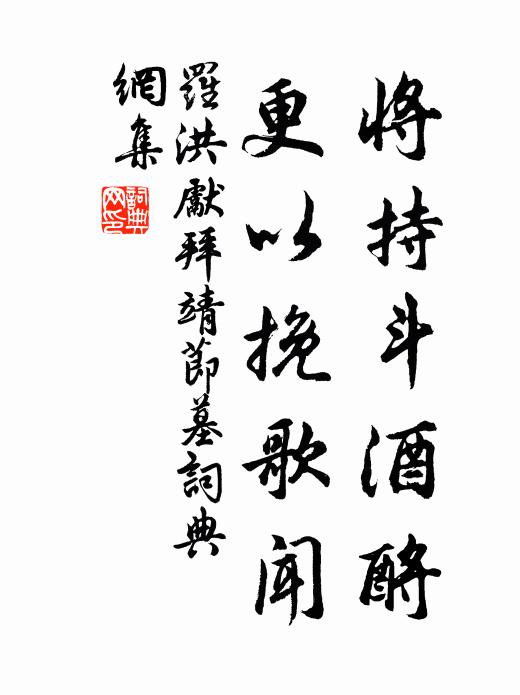 將持斗酒酹
更以挽歌聞
羅洪獻拜靖節墓詞典
網集
詞典
网印